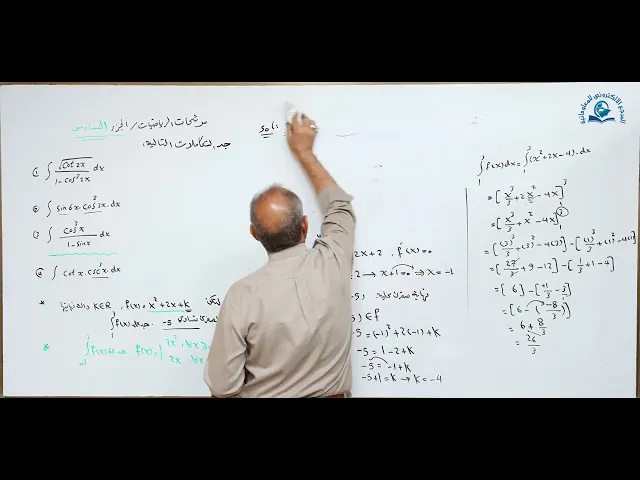 مرشحات الرياضيات / الجزء السادس
جد التكاملات التالية:
① ∫ √cot 2x / 1 - cos² 2x dx
② ∫ sin 6x . cos³ 3x . dx
③ ∫ cos³ x / 1 - sin x dx
④ ∫ cot x . csc³ x dx
* f(x) = x² + 2x + k لتكن K∈R
-5 جد ∫₁³ f(x) dx
* f(x) = { 3x² , ∀x ≥
2x , ∀x
sol:
2x + 2 , f'(x) = 0
2 → x + 1 = 0 ⇒ x = -1
-5) نهاية صغرى محلية
-5) ∈ f
-5 = (-1)² + 2(-1) + k
-5 = 1 - 2 + k
-5 = -1 + k
-5 + 1 = k → k = -4
∫₁³ f(x) dx = ∫₁³ (x² + 2x - 4) . dx
= [x³/3 + 2x²/2 - 4x]₁³
= [x³/3 + x² - 4x]₁³
= [(3)³/3 + (3)² - 4(3)] - [(1)³/3 + (1)² - 4(1)]
= [27/3 + 9 - 12] - [1/3 + 1 - 4]
= [6] - [+1/3 - 3]
= [6 - (-8/3)]
= 6 + 8/3
= 26/3